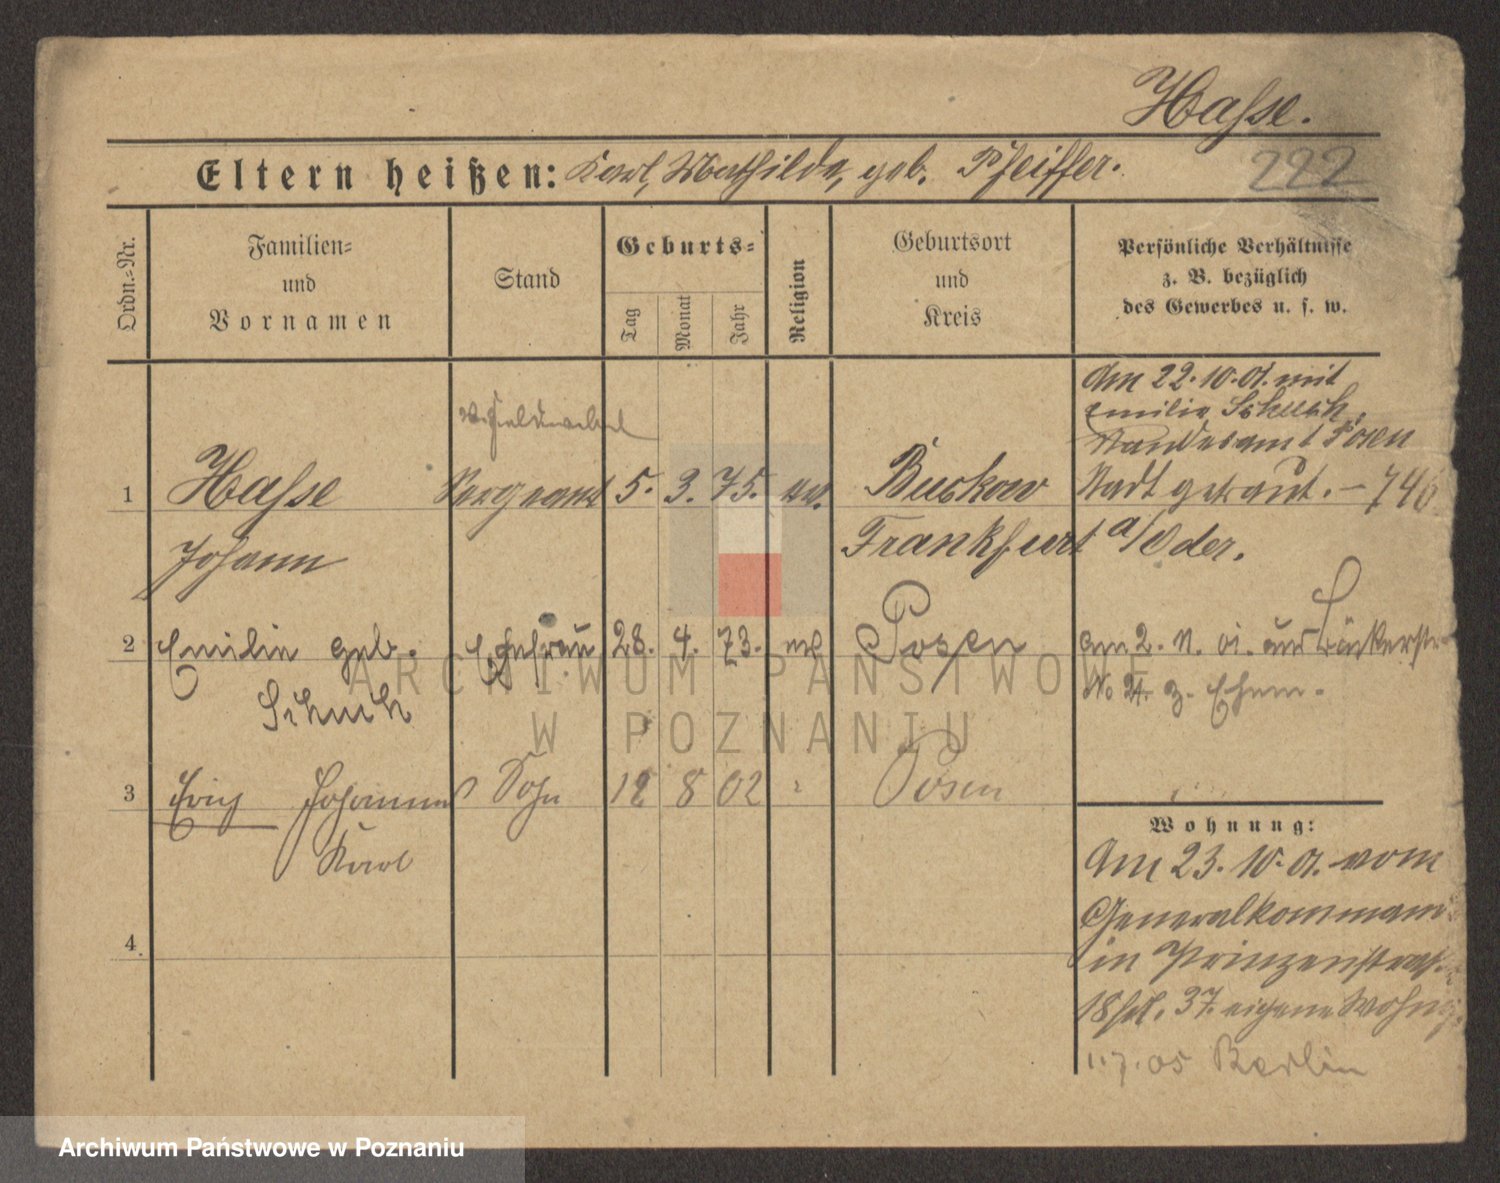 Hasse.
222
Eltern heißen: Karl, Mathilde, geb. Pfeiffer.
Ordn.-Nr.
Familien- und Vornamen
Stand
Geburts-
Tag
Monat
Jahr
Religion
Geburtsort und Kreis
Persönliche Verhältnisse
z. B. bezüglich
des Gewerbes u. s. w.
Am 22.10.01. mit
Emilie Schuch,
Standesamt Posen
Stadt getraut. – 746
1 Hasse Sergeant 5. 3. 75. ev. Buckow
Johann Frankfurt a/Oder.
2 Emilie geb. Ehefrau 28. 4. 73. Posen
Schuch
am 2. 11. 01. aus Bäckerstr.
No 24. z. Ehem.
3 Erich Johannes Sohn 12 8 02 Posen
Karl
4
Wohnung:
Am 23.10.01. vom
Generalkommand
in Prinzenstraß.
18 37. eigene Wohng.
1.7.05 Berlin
ARCHIWUM PAŃSTWOWE
W POZNANIU
Archiwum Państwowe w Poznaniu